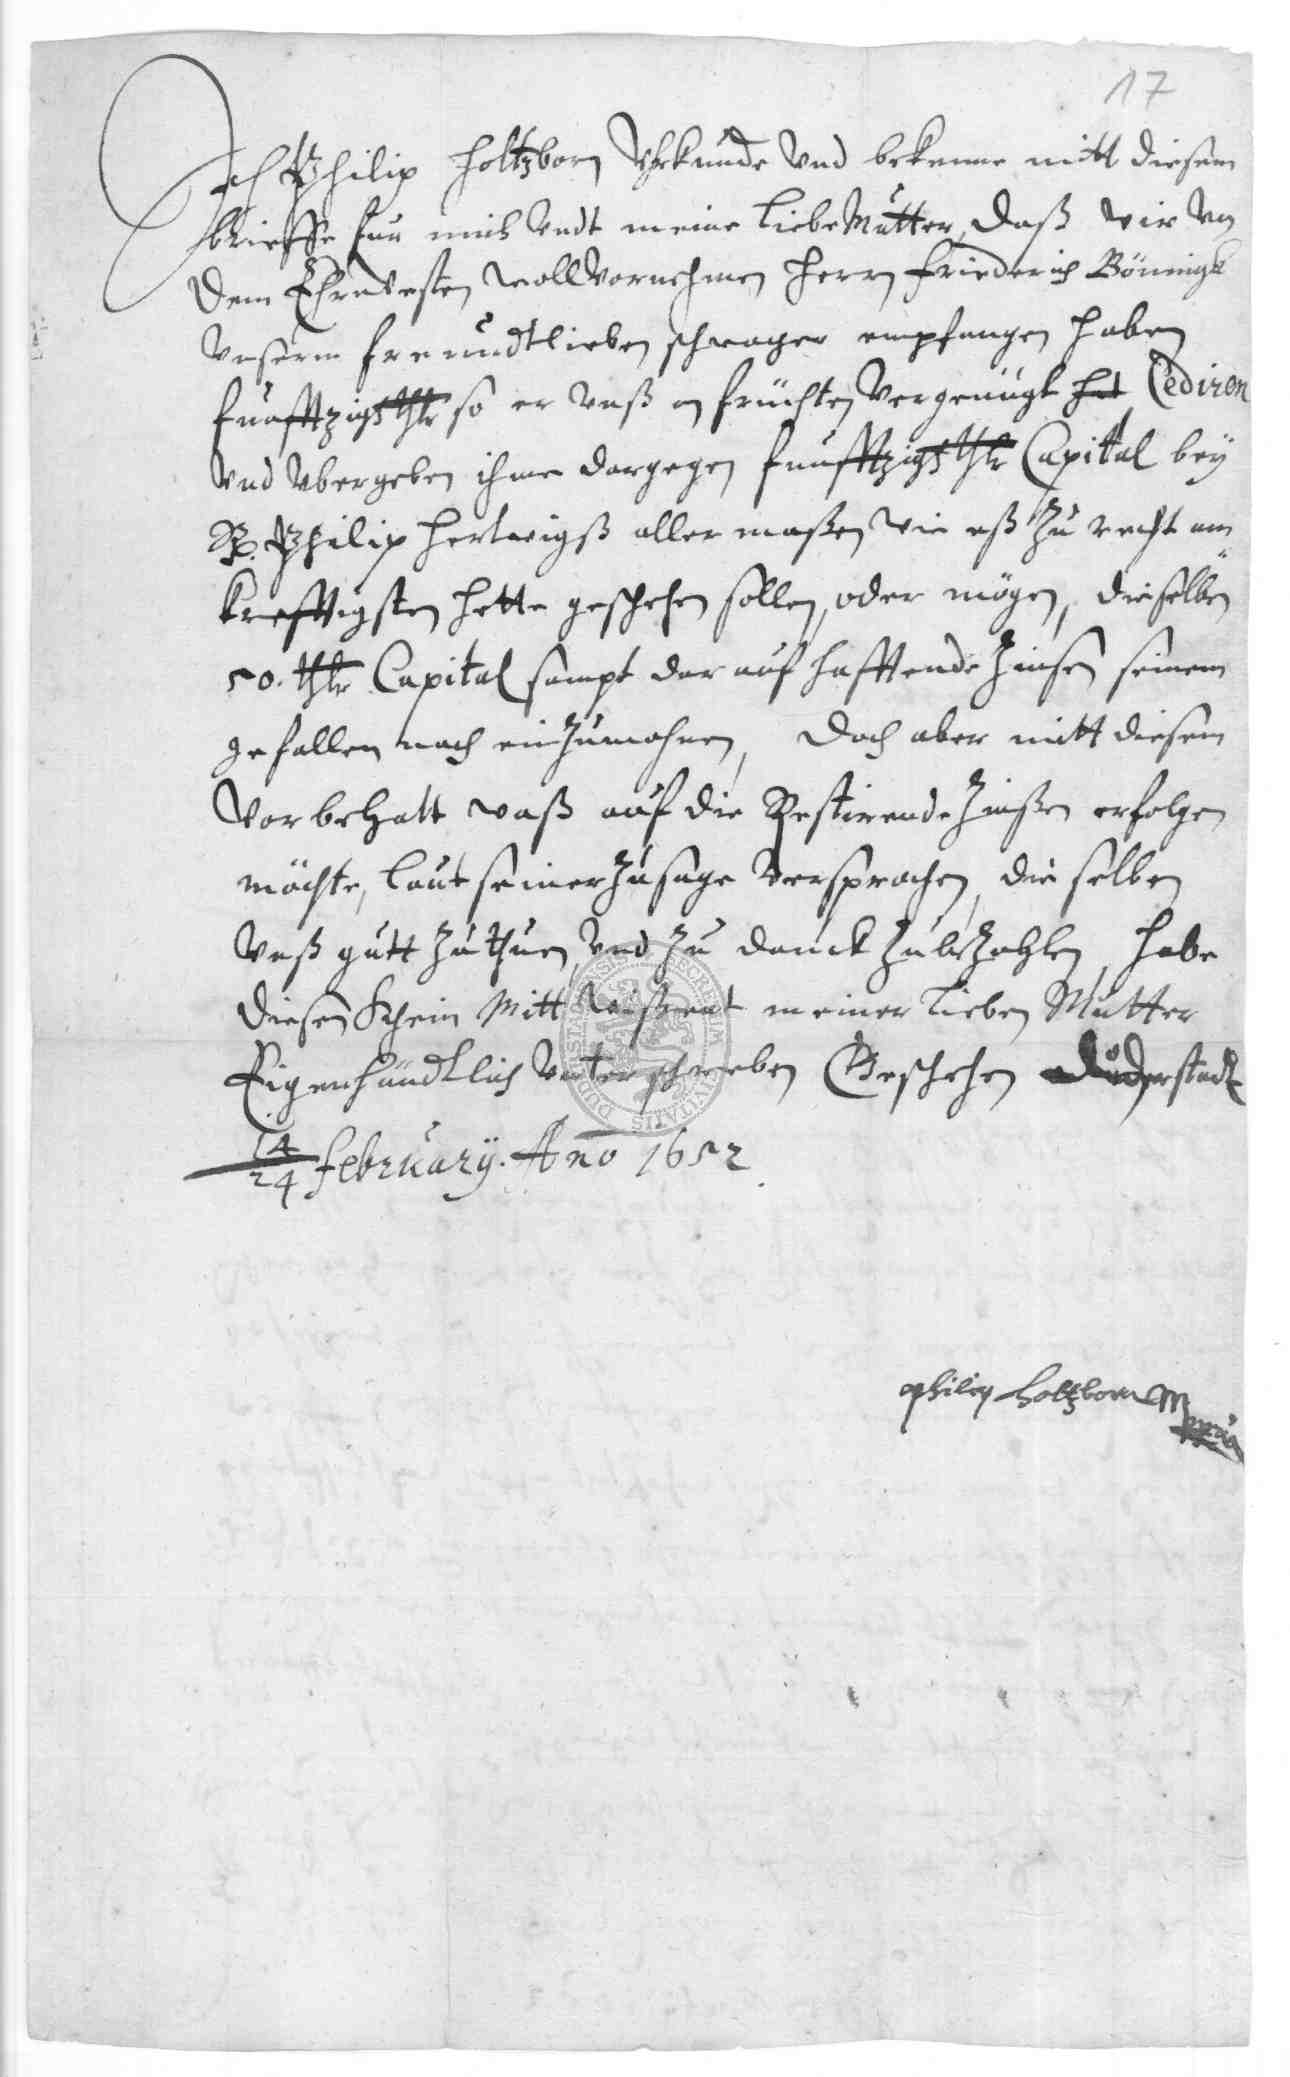 17
Ich Philip Holtzborn Uhrkunde Und bekenne mitt diesem
brieffe fur mich Undt meine liebe Mutter, daß wir von
dem Ehrnvesten wollvornehmen Herrn Friederich Bönnigk
Unserm freundtlieben schwager empfangen haben
funfftzigk thlr so er Unß an früchten Vergenügt hat Cediren
Und Ubergeben ihme dargegen funfftzigk thlr Capital bey
Philip Hertwigß aller maßen wie eß zu recht am
krefftigsten hette geschehen sollen, oder mögen, dieselben
50. thlr Capital sampt darauf hafftende Zinsen seinem
gefallen nach einzumahnen, doch aber mitt diesem
Vorbehalt waß auf die Restirende Zinßen erfolgen
möchte, laut seiner Zusage Versprochen, die selben
Unß gutt zu thuen, Und zu danck zubezahlen, habe
diesen Schein Mitt meiner lieben Mutter
Eigenhändtlich Unterschrieben Geschehen Duderstadt
14/24 February. Ano 1652
Philip Holtzborn Mppria